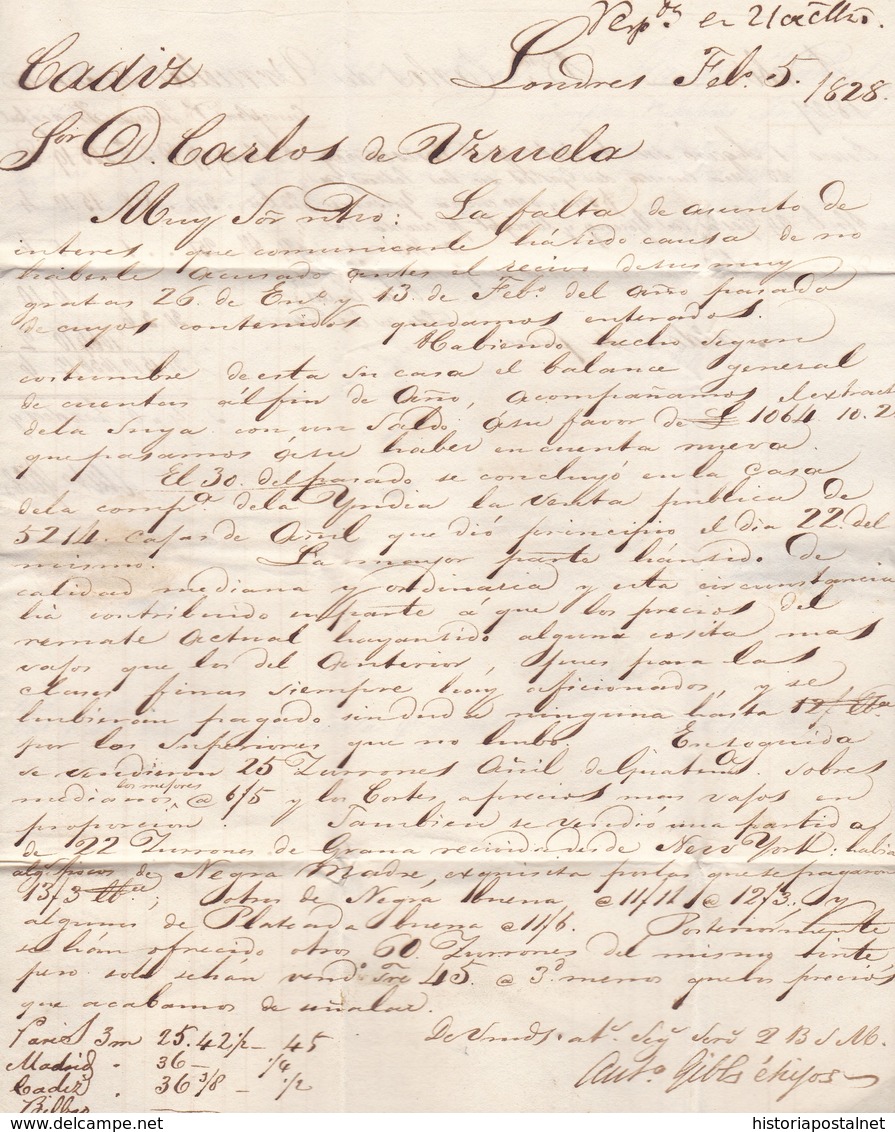 Resp.da en 21 de Mzo.
Cadiz
Londres Feb.o 5. 1828.
Sor. D. Carlos de Urruela
Muy Sor. ntro: La falta de asunto de
interes que comunicarle há sido causa de no
haberle acusado antes el recivo de sus muy
gratas 26. de En.o y 13. de Feb.o del año pasado
de cuyos contenidos quedamos enterados.
Habiendo hecho segun
costumbre de esta su casa el balance general
de cuentas al fin de Año, acompañamos el extracto
de la suya con un saldo á su favor de £ 1064 10. 2
que pasamos á su haber en cuenta nueva.
El 30. del pasado se concluyó en la Casa
de la Comp.a de la Yndia la venta publica de
5214. cajas de Añil que dió principio el dia 22. del
mismo. La mayor parte hán sido de
calidad mediana y ordinaria y esta circunstancia
há contribuido en parte á que los precios del
remate actual hayan sido alguna cosita mas
vajos que los del anterior, pues para las
clases finas siempre háy aficionados, y se
hubieran pagado sin duda ninguna hasta 12/ lba
por los superiores que no hubo. Enseguida
se vendieron 25 Zurrones Añil de Guatem.a sobres
medianos, los mejores @ 6/5 y los Cortes a precios mas vajos en
proporcion. Tambien se vendió una partida
de 22 Zurrones de Grana recividas de New York: habia
alg.s pocos de Negra Madre, exquisita por las que se pagaron
13/3 lba; otros de Negra buena, @ 11/11 @ 12/3, y
algunos de Plateada buena @ 11/6. Posteriormente
se han ofrecido otros 60. Zurrones del mismo tinte
pero solo se hán vend.o 45. @ 3d menos que los precios
que acabamos de señalar.
Paris 3 m 25. 42 1/2 — 45
De Vmds. at.s Seg.s Serv.s Q B S M.
Madrid " 36 — 1/4
Ant.o Gibbs é hijos
Cadiz " 36 3/8 — 1/2
Bilbao
historiapostalnet